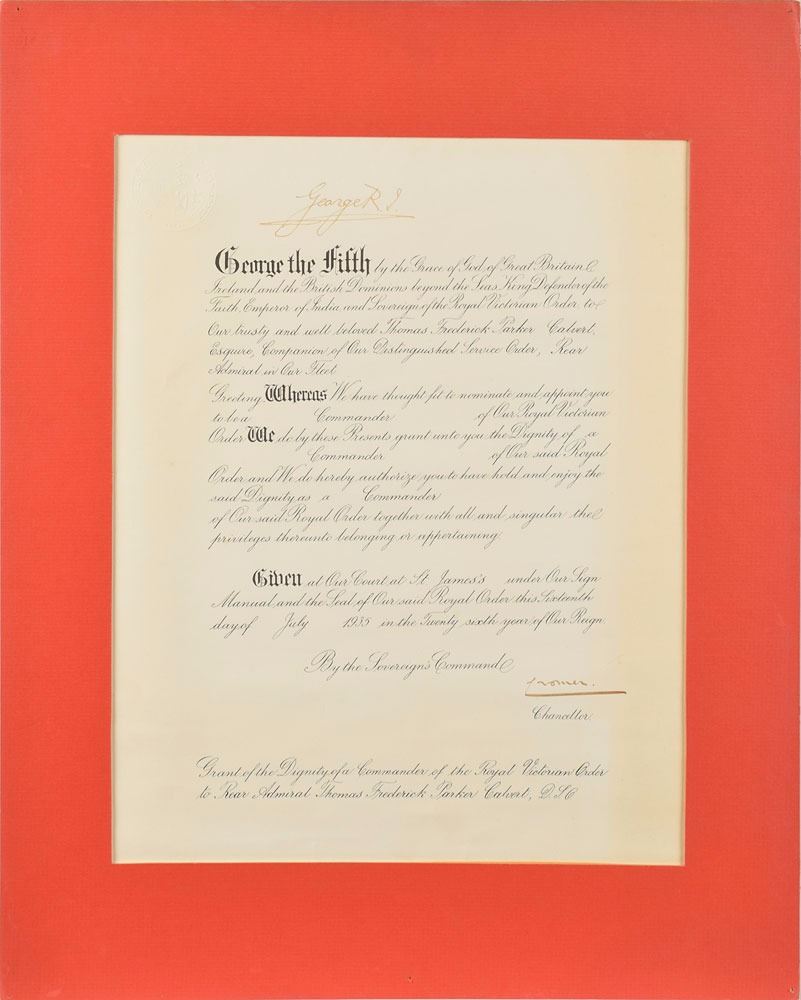 George R. I.
George the Fifth by the Grace of God, of Great Britain,
Ireland and the British Dominions beyond the Seas, King, Defender of the
Faith, Emperor of India and Sovereign of the Royal Victorian Order, to
Our trusty and well beloved Thomas Frederick Parker Calvert,
Esquire, Companion of Our Distinguished Service Order, Rear
Admiral in Our Fleet
Greeting, Whereas We have thought fit to nominate and appoint you
to be a Commander of Our Royal Victorian
Order We do by these Presents grant unto you the Dignity of a
Commander of Our said Royal
Order and We do hereby authorize you to have hold and enjoy the
said Dignity as a Commander
of Our said Royal Order together with all and singular the
privileges thereunto belonging or appertaining.
Given at Our Court at St James's under Our Sign
Manual and the Seal of Our said Royal Order this Sixteenth
day of July 1935 in the Twenty sixth year of Our Reign.
By the Sovereign's Command
Cromer.
Chancellor.
Grant of the Dignity of a Commander of the Royal Victorian Order
to Rear Admiral Thomas Frederick Parker Calvert, D.S.O